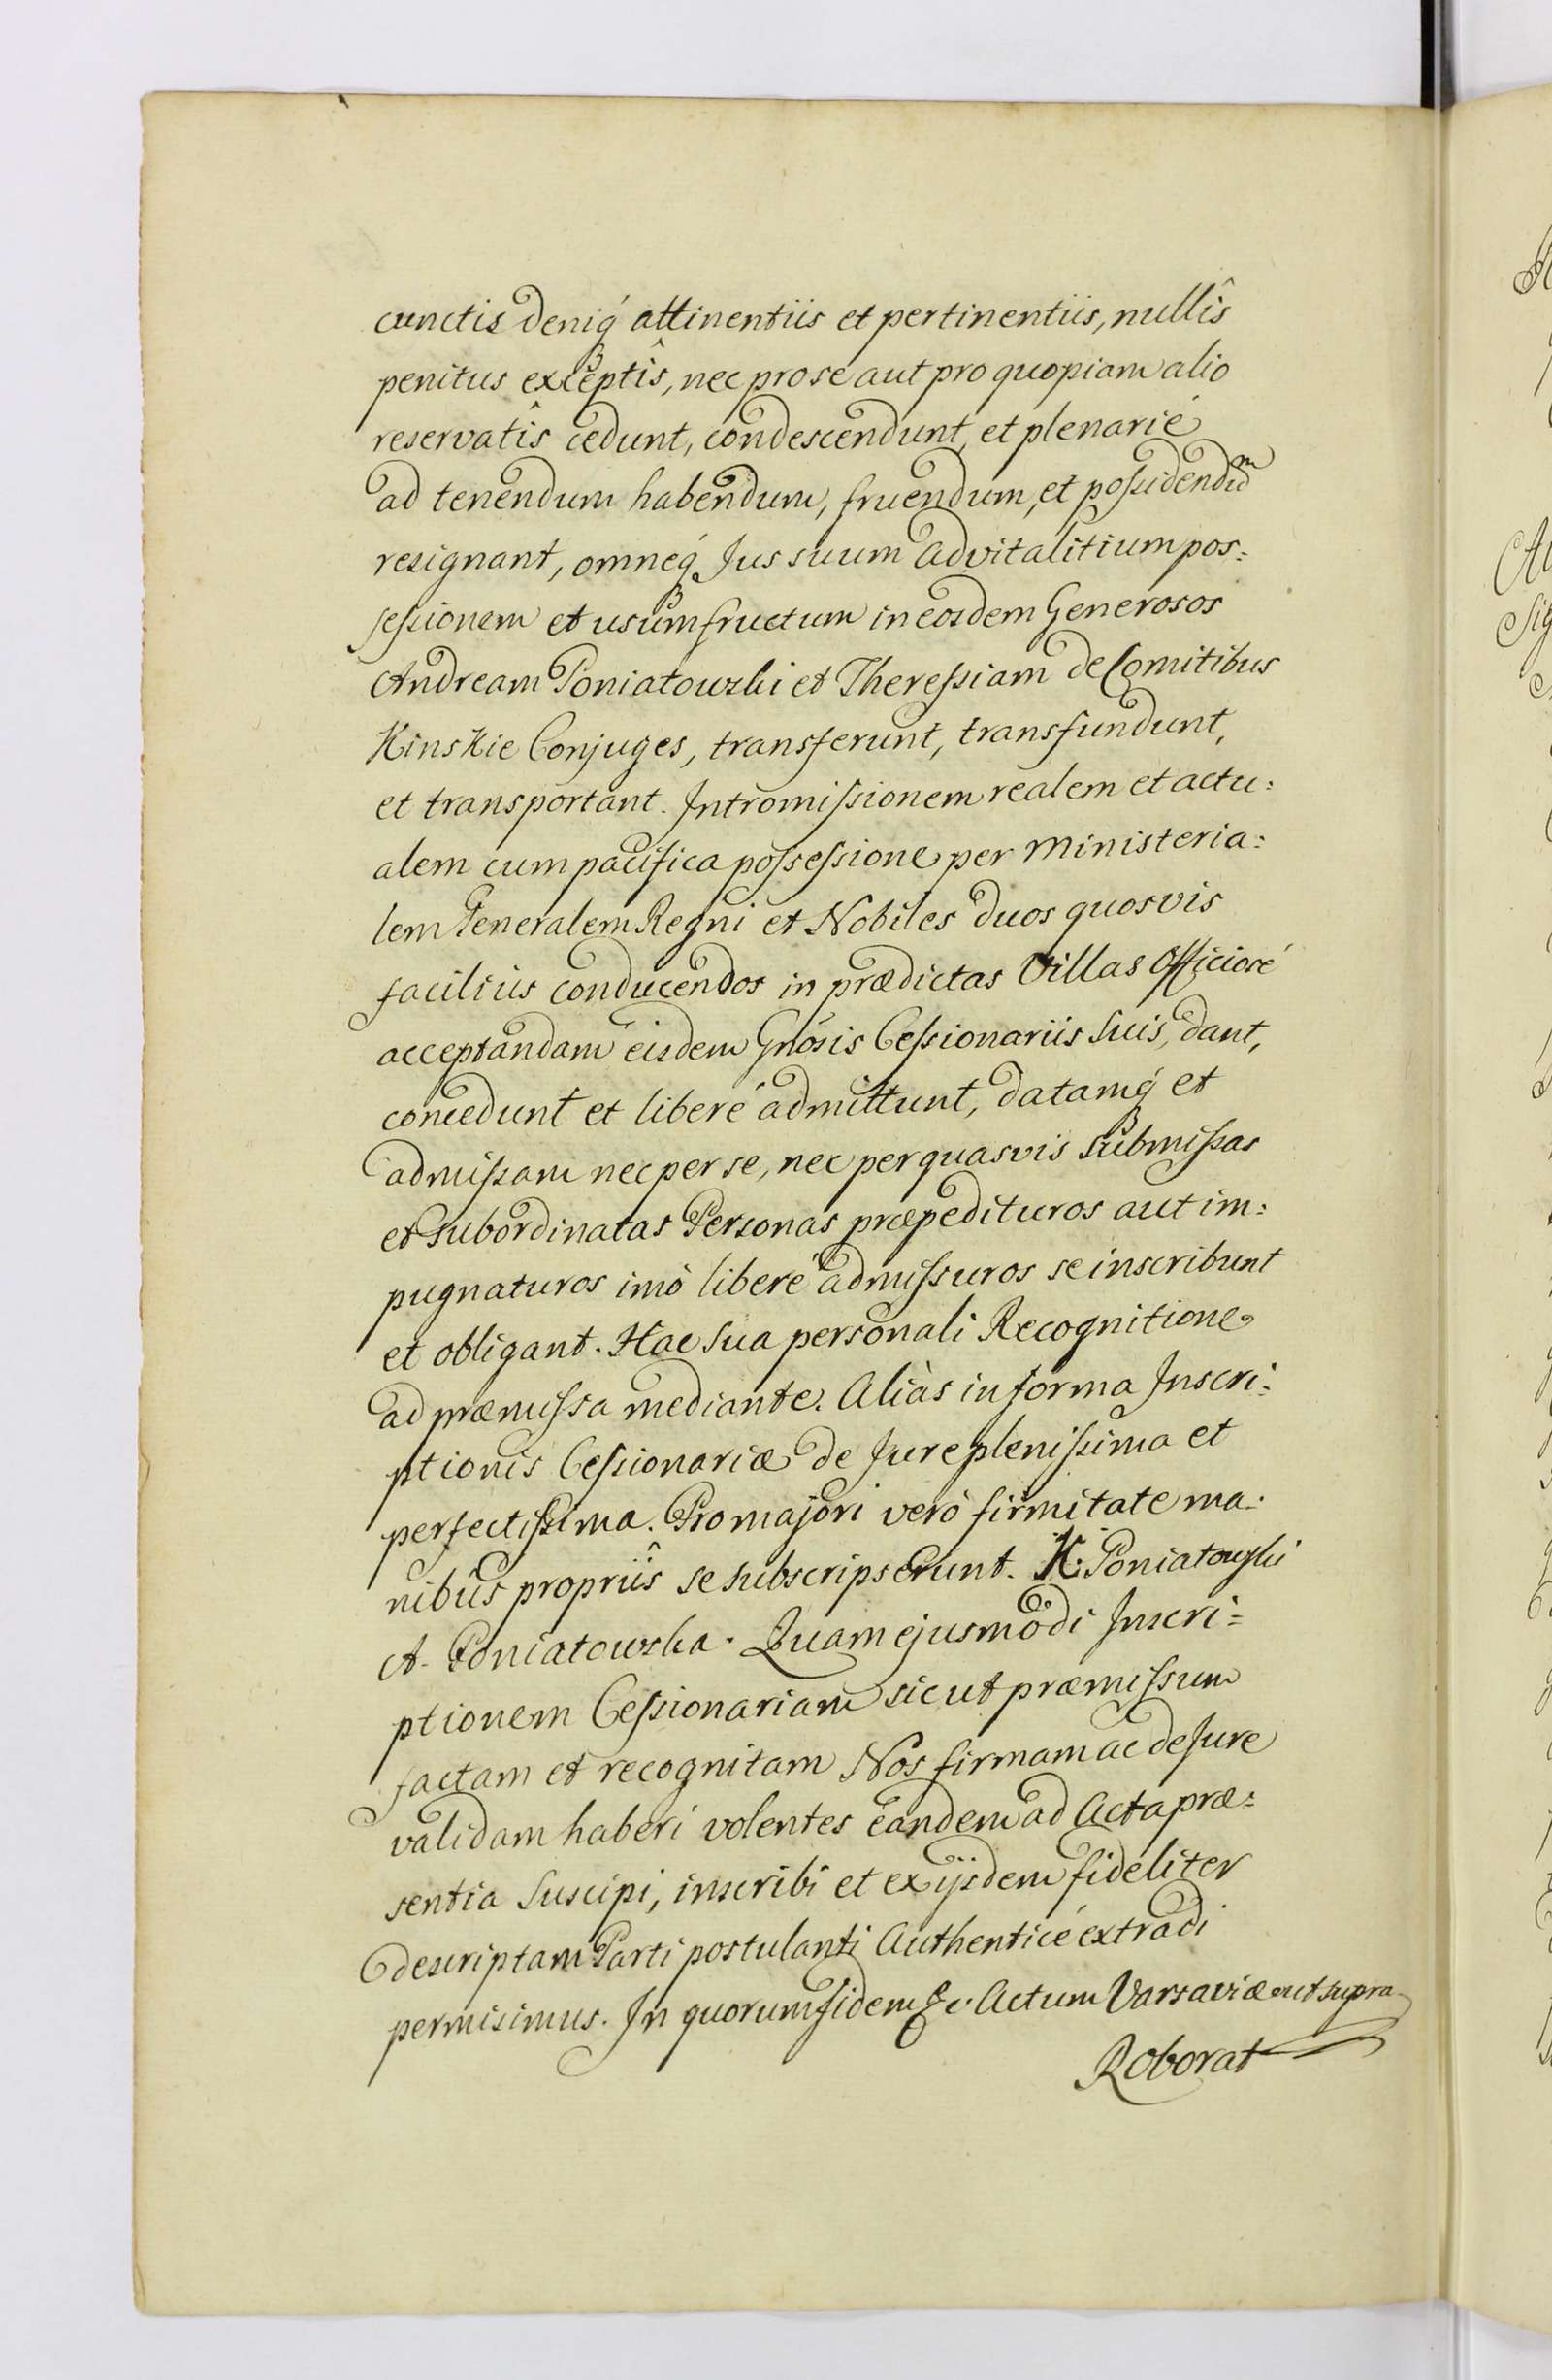 cunctis deniq́ attinentiis et pertinentiis, nullîs
penitus exceptîs, nec pro se aut pro quopiam alio
reservatîs cedunt, condescendunt, et plenarié
ad tenendum habendum, fruendum, et possidendũm
resignant, omneq́ Jus suum advitalitium pos:
sessionem et usumfructum in eosdem Generosos
Andream Poniatowski et Theressiam de Comitibus
Kinskie Conjuges, transferunt, transfundunt,
et transportant. Intromissionem realem et actu:
alem cum pacifica possessione per Ministeria:
lem Generalem Regni et Nobiles duos quosvis
facilius conducendos in prædictas Villas Officiosé
acceptandam eisdem Gnosis Cessionariis Suis, dant,
concedunt et liberé admittunt, datamq́ et
admissam nec per se, nec per quasvis submissas
et subordinatas Personas præpedituros aut im:
pugnaturos imò liberé admissuros se inscribunt
et obligant. Hac sua personali Recognitione
ad præmissa mediante. Aliàs in forma Inscri:
ptionis Cessionariæ de Jure plenissima et
perfectissima. Pro majori verò firmitate ma:
nibus propriîs se subscripserunt. K. Poniatowski
A. Poniatowska. Quam ejusmodi Inscri=
ptionem Cessionariam sicut præmissum
factam et recognitam Nos firmam ac de Jure
validam haberi volentes eandem ad Acta præ:
sentia Suscipi, inscribi et ex ijsdem fideliter
descriptam Parti postulanti Authenticé extradi
permisimus. In quorum fidem &c. Actum Varsaviæ ut supra
Roborat